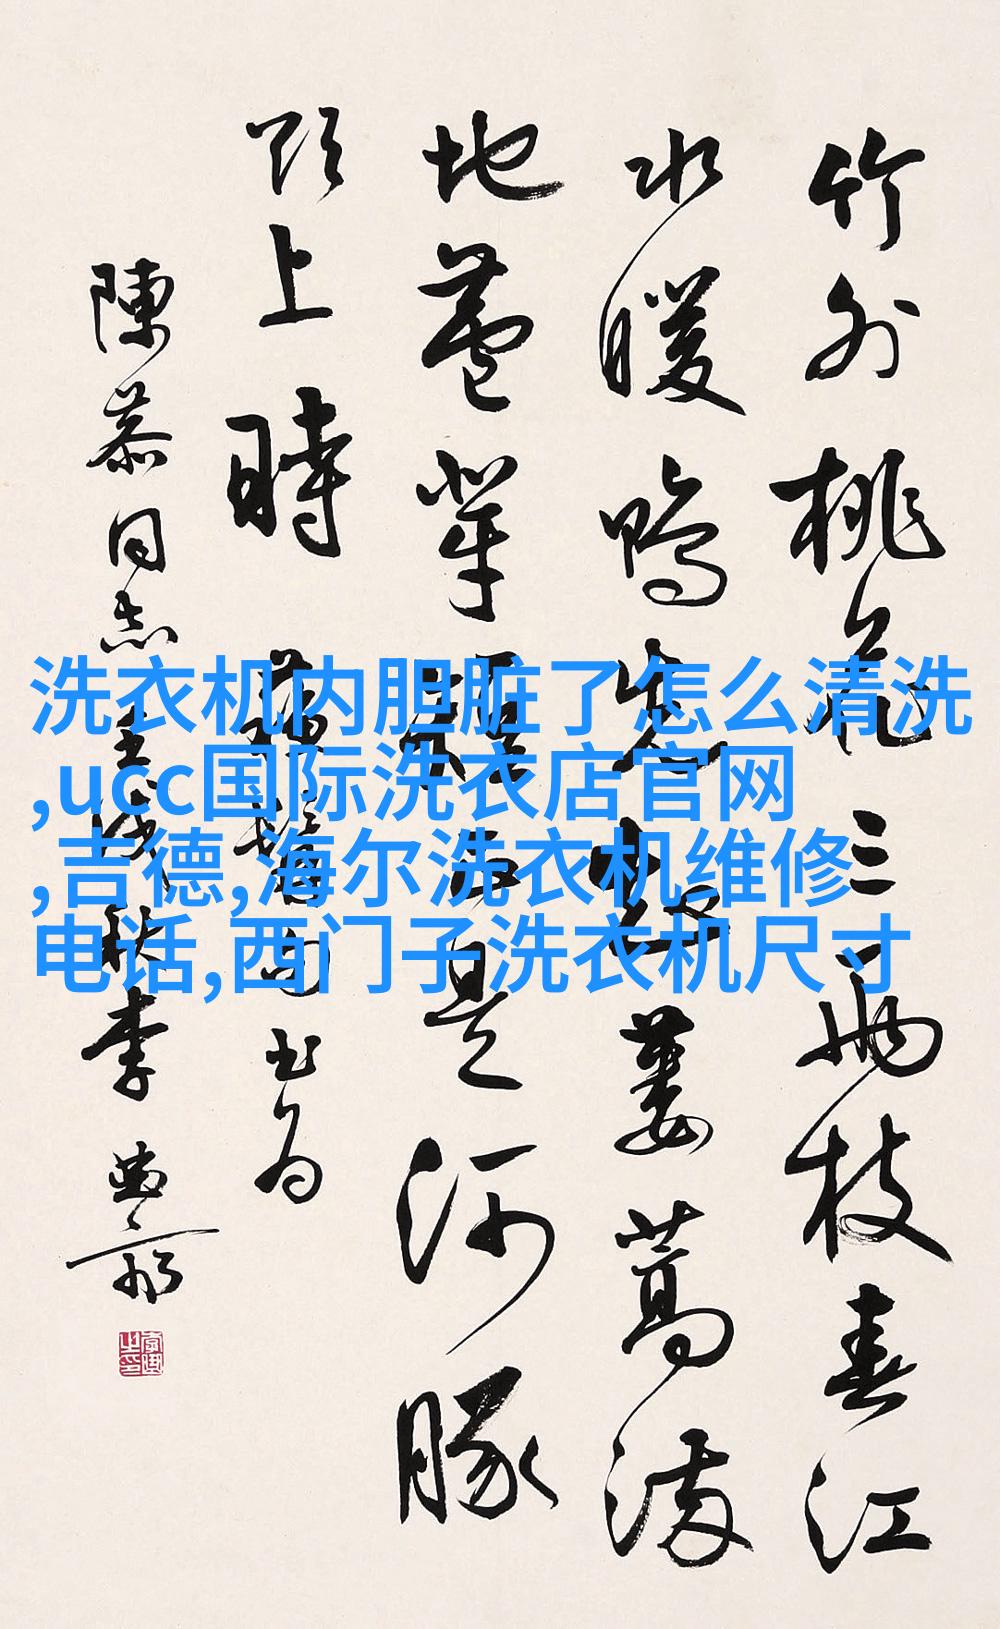 竹外桃花三两枝春江
水暖鴨先知蔞蒿滿
地蘆芽短正是河豚
欲上時 书为
陳慕同志 秋李
洗衣机内胆脏了怎么清洗
,ucc国际洗衣店官网
,吉德,海尔洗衣机维修
电话,西门子洗衣机尺寸